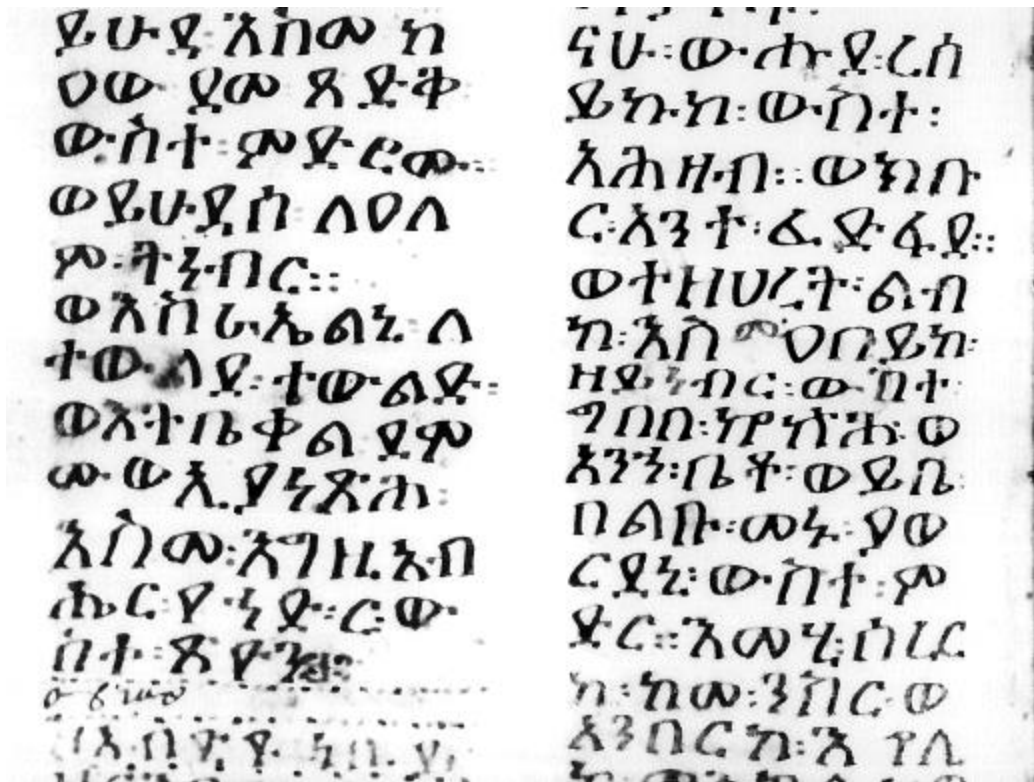 ይሁዳ እስመ ከ
ዐው ደመ ጻድቅ
ውስተ፡ ምድሮሙ።
ወይሁዳሰ ለዐለ
ም፡ ትነብር።
ወእስራኤልኒ ለ
ተውላደ፡ ተውልድ፡
ወእትቤቀል ደሞ
ሙ ወኢያነጽሕ፡
እስመ፡ እግዚአብ
ሔር፡ የኀድር፡ ው
ስተ፡ ጽዮን
ናሁ፡ ውሑደ፡ ረሰ
ይኩከ፡ ውስተ፡
አሕዛብ። ወክቡ
ር፡ አንተ፡ ፈድፋደ።
ወተዝህረት፡ ልብ
ከ፡ እስመ ዐበይከ
ዘይነብር፡ ውስተ
ግበበ፡ ኰኵሕ ወ
አንኀ፡ ቤቶ፡ ወይቤ
በልቡ፡ መኑ፡ ያወ
ርደኒ፡ ውስተ፡ ም
ድር። እመሂ፡ ሰረር
ከ፡ ከመ፡ ንስር ወ